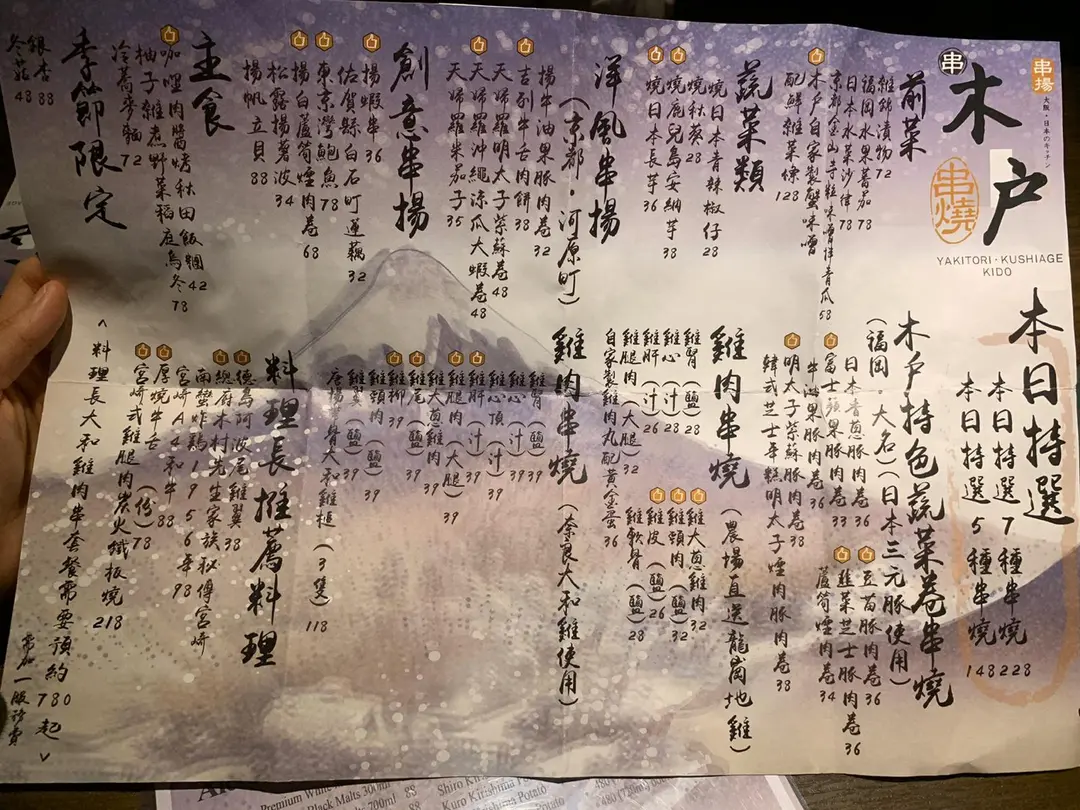 串揚
大阪・日本のキッチン
串
木戸
串燒
YAKITORI・KUSHIAGE
KIDO
本日特選
本日特選7種串燒228
本日特選5種串燒148
前菜
雜錦漬物72
福岡水果蕃茄78
日本水菜沙律78
京都金山寺粒味噌伴青瓜58
木戸自家製蟹味噌
配鮮雜菜條128
蔬菜類
燒日本青辣椒仔28
燒秋葵28
燒鹿兒島安納芋38
燒日本長芋36
洋風串揚
(京都・河原町)
揚牛油果豚肉卷32
吉列牛舌肉餅38
天婦羅明太子紫蘇卷48
天婦羅沖繩涼瓜大蝦卷48
天婦羅米茄子35
創意串揚
揚蝦串36
佐賀縣白石町蓮藕32
東京灣鮑魚78
揚白蘆筍煙肉卷68
松露揚薯波34
揚帆立貝88
主食
咖哩肉醬烤秋田飯糰42
柚子雜煮野菜稻庭烏冬78
冷蕎麥麵72
季節限定
銀杏88
冬菇48
木戸特色蔬菜卷串燒
(福岡・大名)(日本三元豚使用)
日本青蔥豚肉卷36
富士蘋果豚肉卷33
牛油果豚肉卷36
明太子紫蘇豚肉卷38
韓式芝士年糕明太子煙肉豚肉卷38
豆苗豚肉卷36
韮菜芝士豚肉卷36
蘆筍煙肉卷34
雞肉串燒
(農場直送龍崗地雞)
雞腎(鹽)28
雞心(汁)28
雞肝(汁)26
雞腿肉(大腿)32
自家製雞肉丸配黃金蛋36
雞大蔥雞肉32
雞頸肉(鹽)32
雞皮(鹽)26
雞軟骨(鹽)28
雞肉串燒
(奈良大和雞使用)
雞腎(鹽)39
雞心(汁)39
雞心頂(汁)39
雞肝(汁)39
雞腿肉(大腿)39
雞大蔥雞肉39
雞尾(鹽)39
雞柳39
雞頸肉(鹽)39
雞翼(鹽)39
唐揚骨付大和雞槌(3隻)118
料理長推薦料理
德島阿波尾雞翼38
總府木村先生家族秘傳宮崎
南蠻炸鷄1956年98
宮崎A4和牛88
厚燒牛舌(份)78
宮崎式雞腿肉炭火鐵板燒218
<料理長大和雞肉串套餐需要預約780起>
需加一服務費
Premium
Black Malts 700ml 88
Shiro Kirishima
Kuro Kirishima Potato